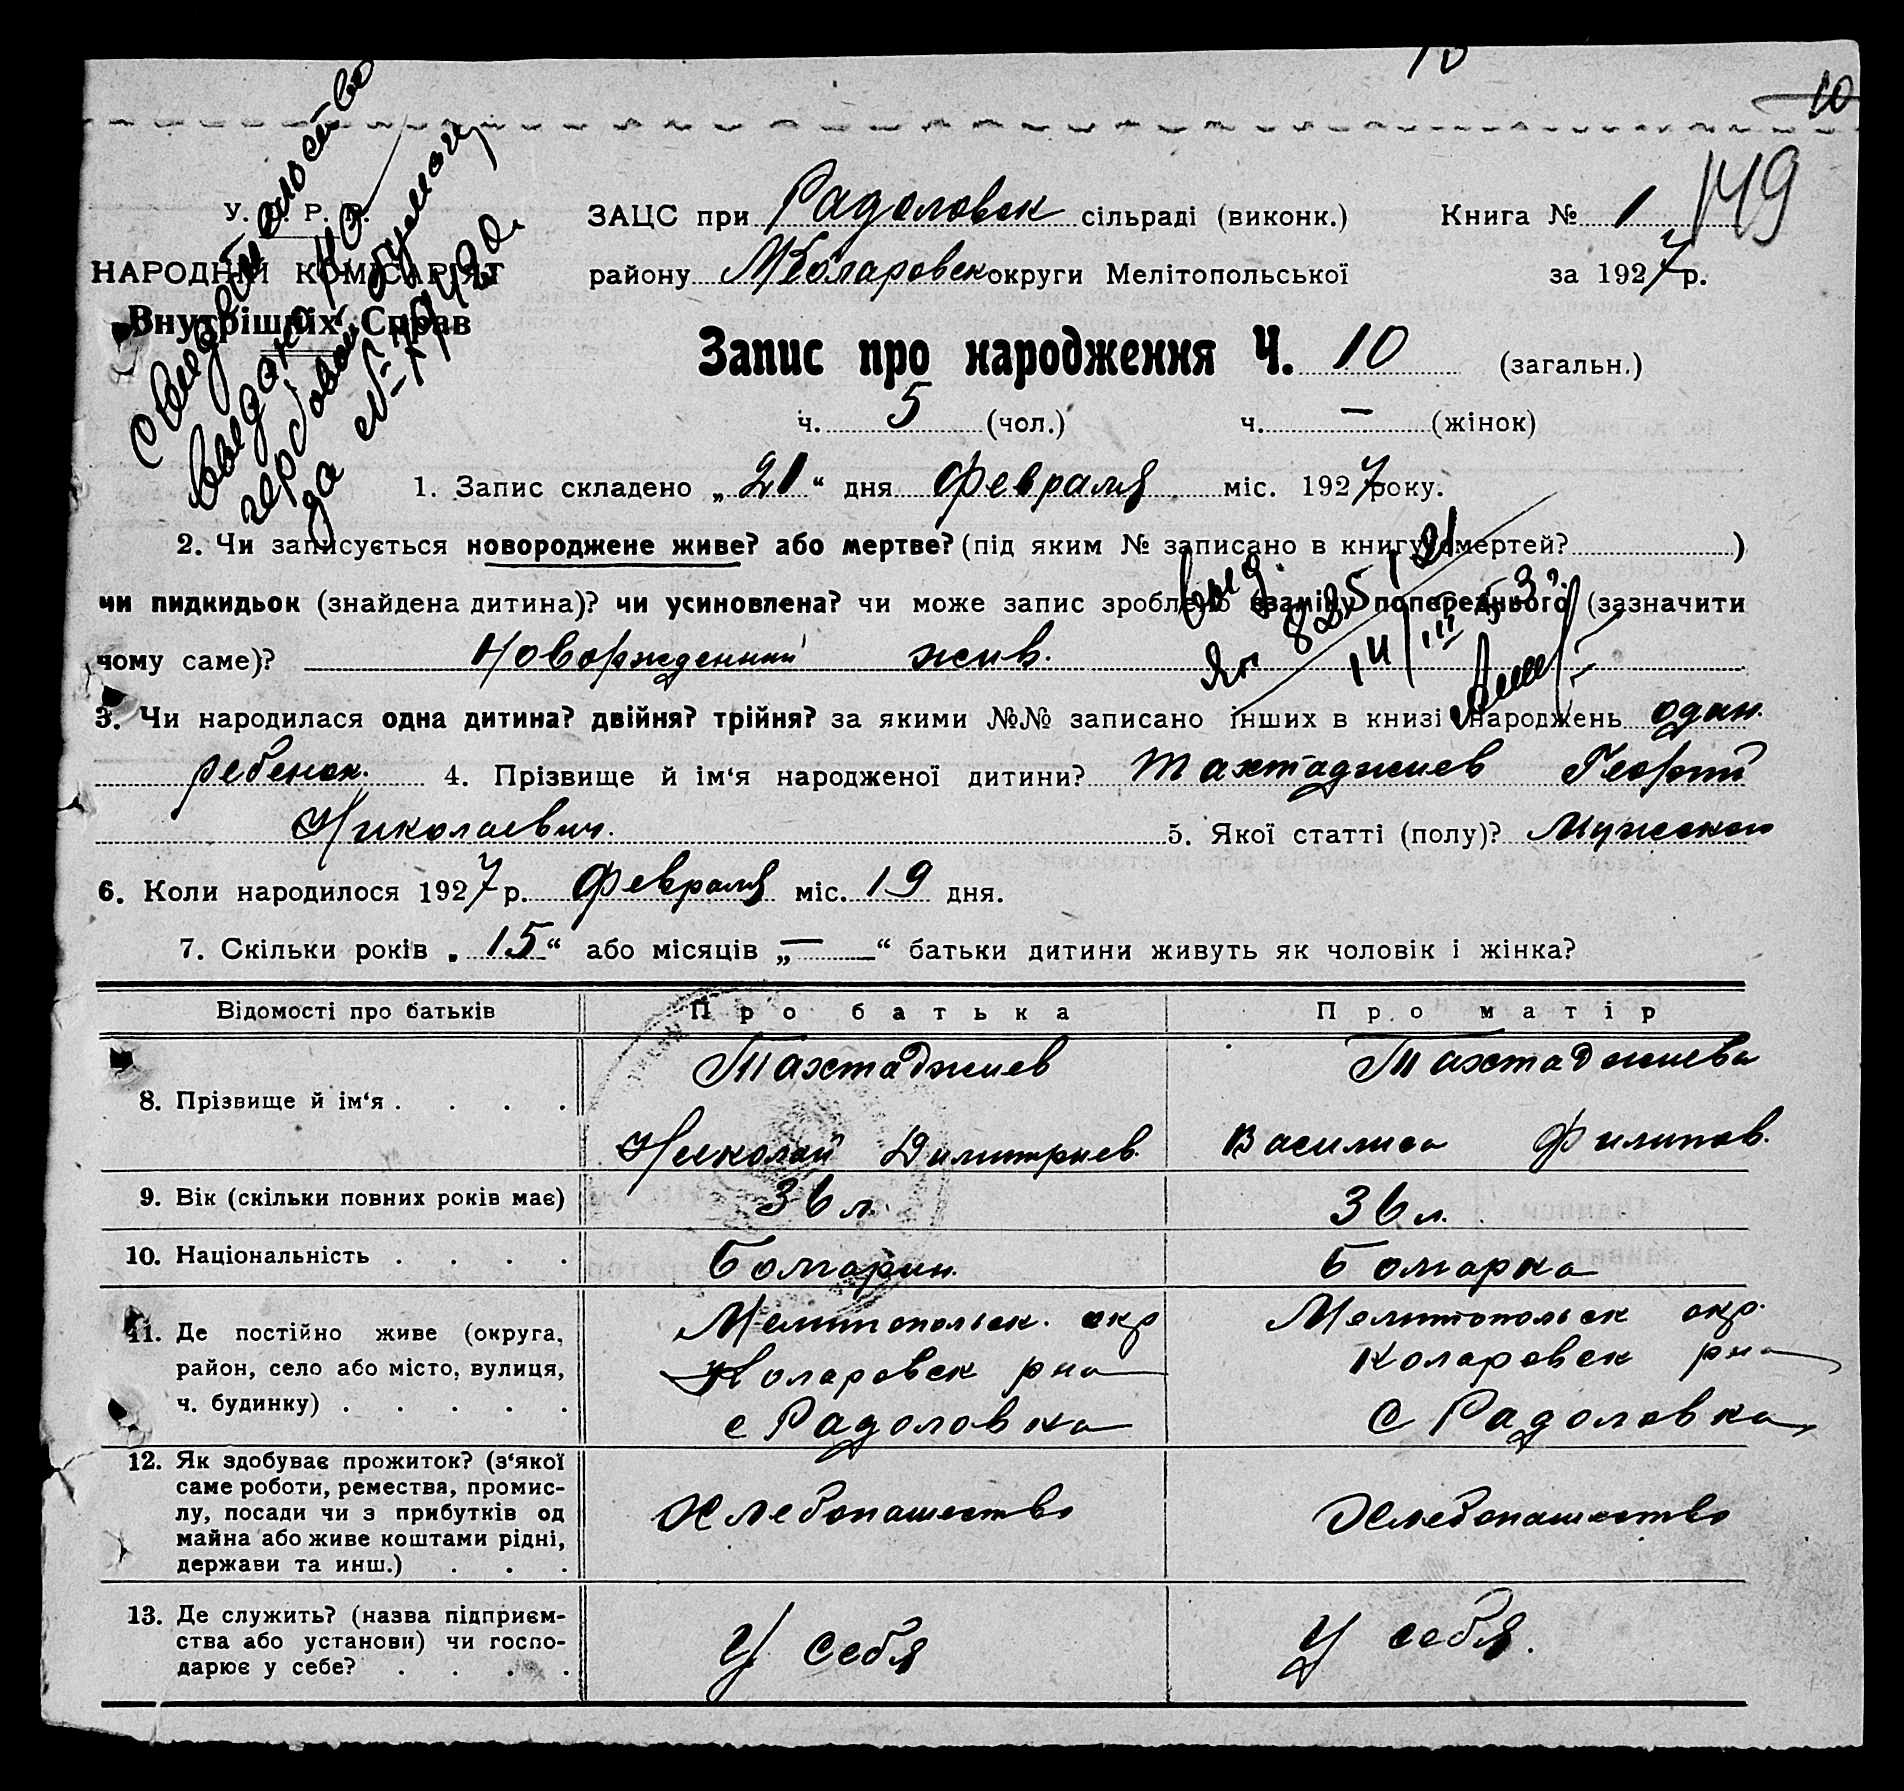 10
149
У. С. Р. Р.
НАРОДНІЙ КОМІСАРІЯТ
Внутрішніх Справ
Свидетельство
выдано на
гербовой бумаге
за №
ЗАЦС при Радоловск сільраді (виконк.) Книга № 1
району Коларовск округи Мелітопольської за 1927 р.
Запис про народження Ч. 10 (загальн.)
ч. 5 (чол.) ч. — (жінок)
1. Запис складено „21“ дня Февраля міс. 1927 року.
2. Чи записується новороджене живе? або мертве? (під яким № записано в книгу смертей? )
чи пидкидьок (знайдена дитина)? чи усиновлена? чи може запис зроблено взаміну попереднього (зазначити
чому саме)? Новорожденный жив.
3. Чи народилася одна дитина? двійня? трійня? за якими №№ записано інших в книзі народжень один
ребенок. 4. Прізвище й ім‘я народженої дитини? Тахтаджиев Георгий
Николаевич. 5. Якої статті (полу)? Мужского
6. Коли народилося 1927 р. Февраля міс. 19 дня.
7. Скільки років „15“ або місяців „—“ батьки дитини живуть як чоловік і жінка?
Відомості про батьків Про батька Про матір
8. Прізвище й ім‘я . . . . Тахтаджиев Тахтаджиева
Николай Димитриев. Василиса Филипов.
9. Вік (скільки повних років має) 36 л. 36 л.
10. Національність . . . . Болгарин. Болгарка
11. Де постійно живе (округа, Мелитопольск. окр Мелитопольск окр.
район, село або місто, вулиця, Коларовск рна Коларовск рна
ч. будинку) . . . . . с Радоловка с Радоловка
12. Як здобуває прожиток? (з‘якої
саме роботи, ремества, промис-
лу, посади чи з прибутків од Хлебопашество Хлебопашество
майна або живе коштами рідні,
держави та инш.) . . .
13. Де служить? (назва підприєм-
ства або установи) чи госпо- У себя У себя.
дарює у себе? . . . .